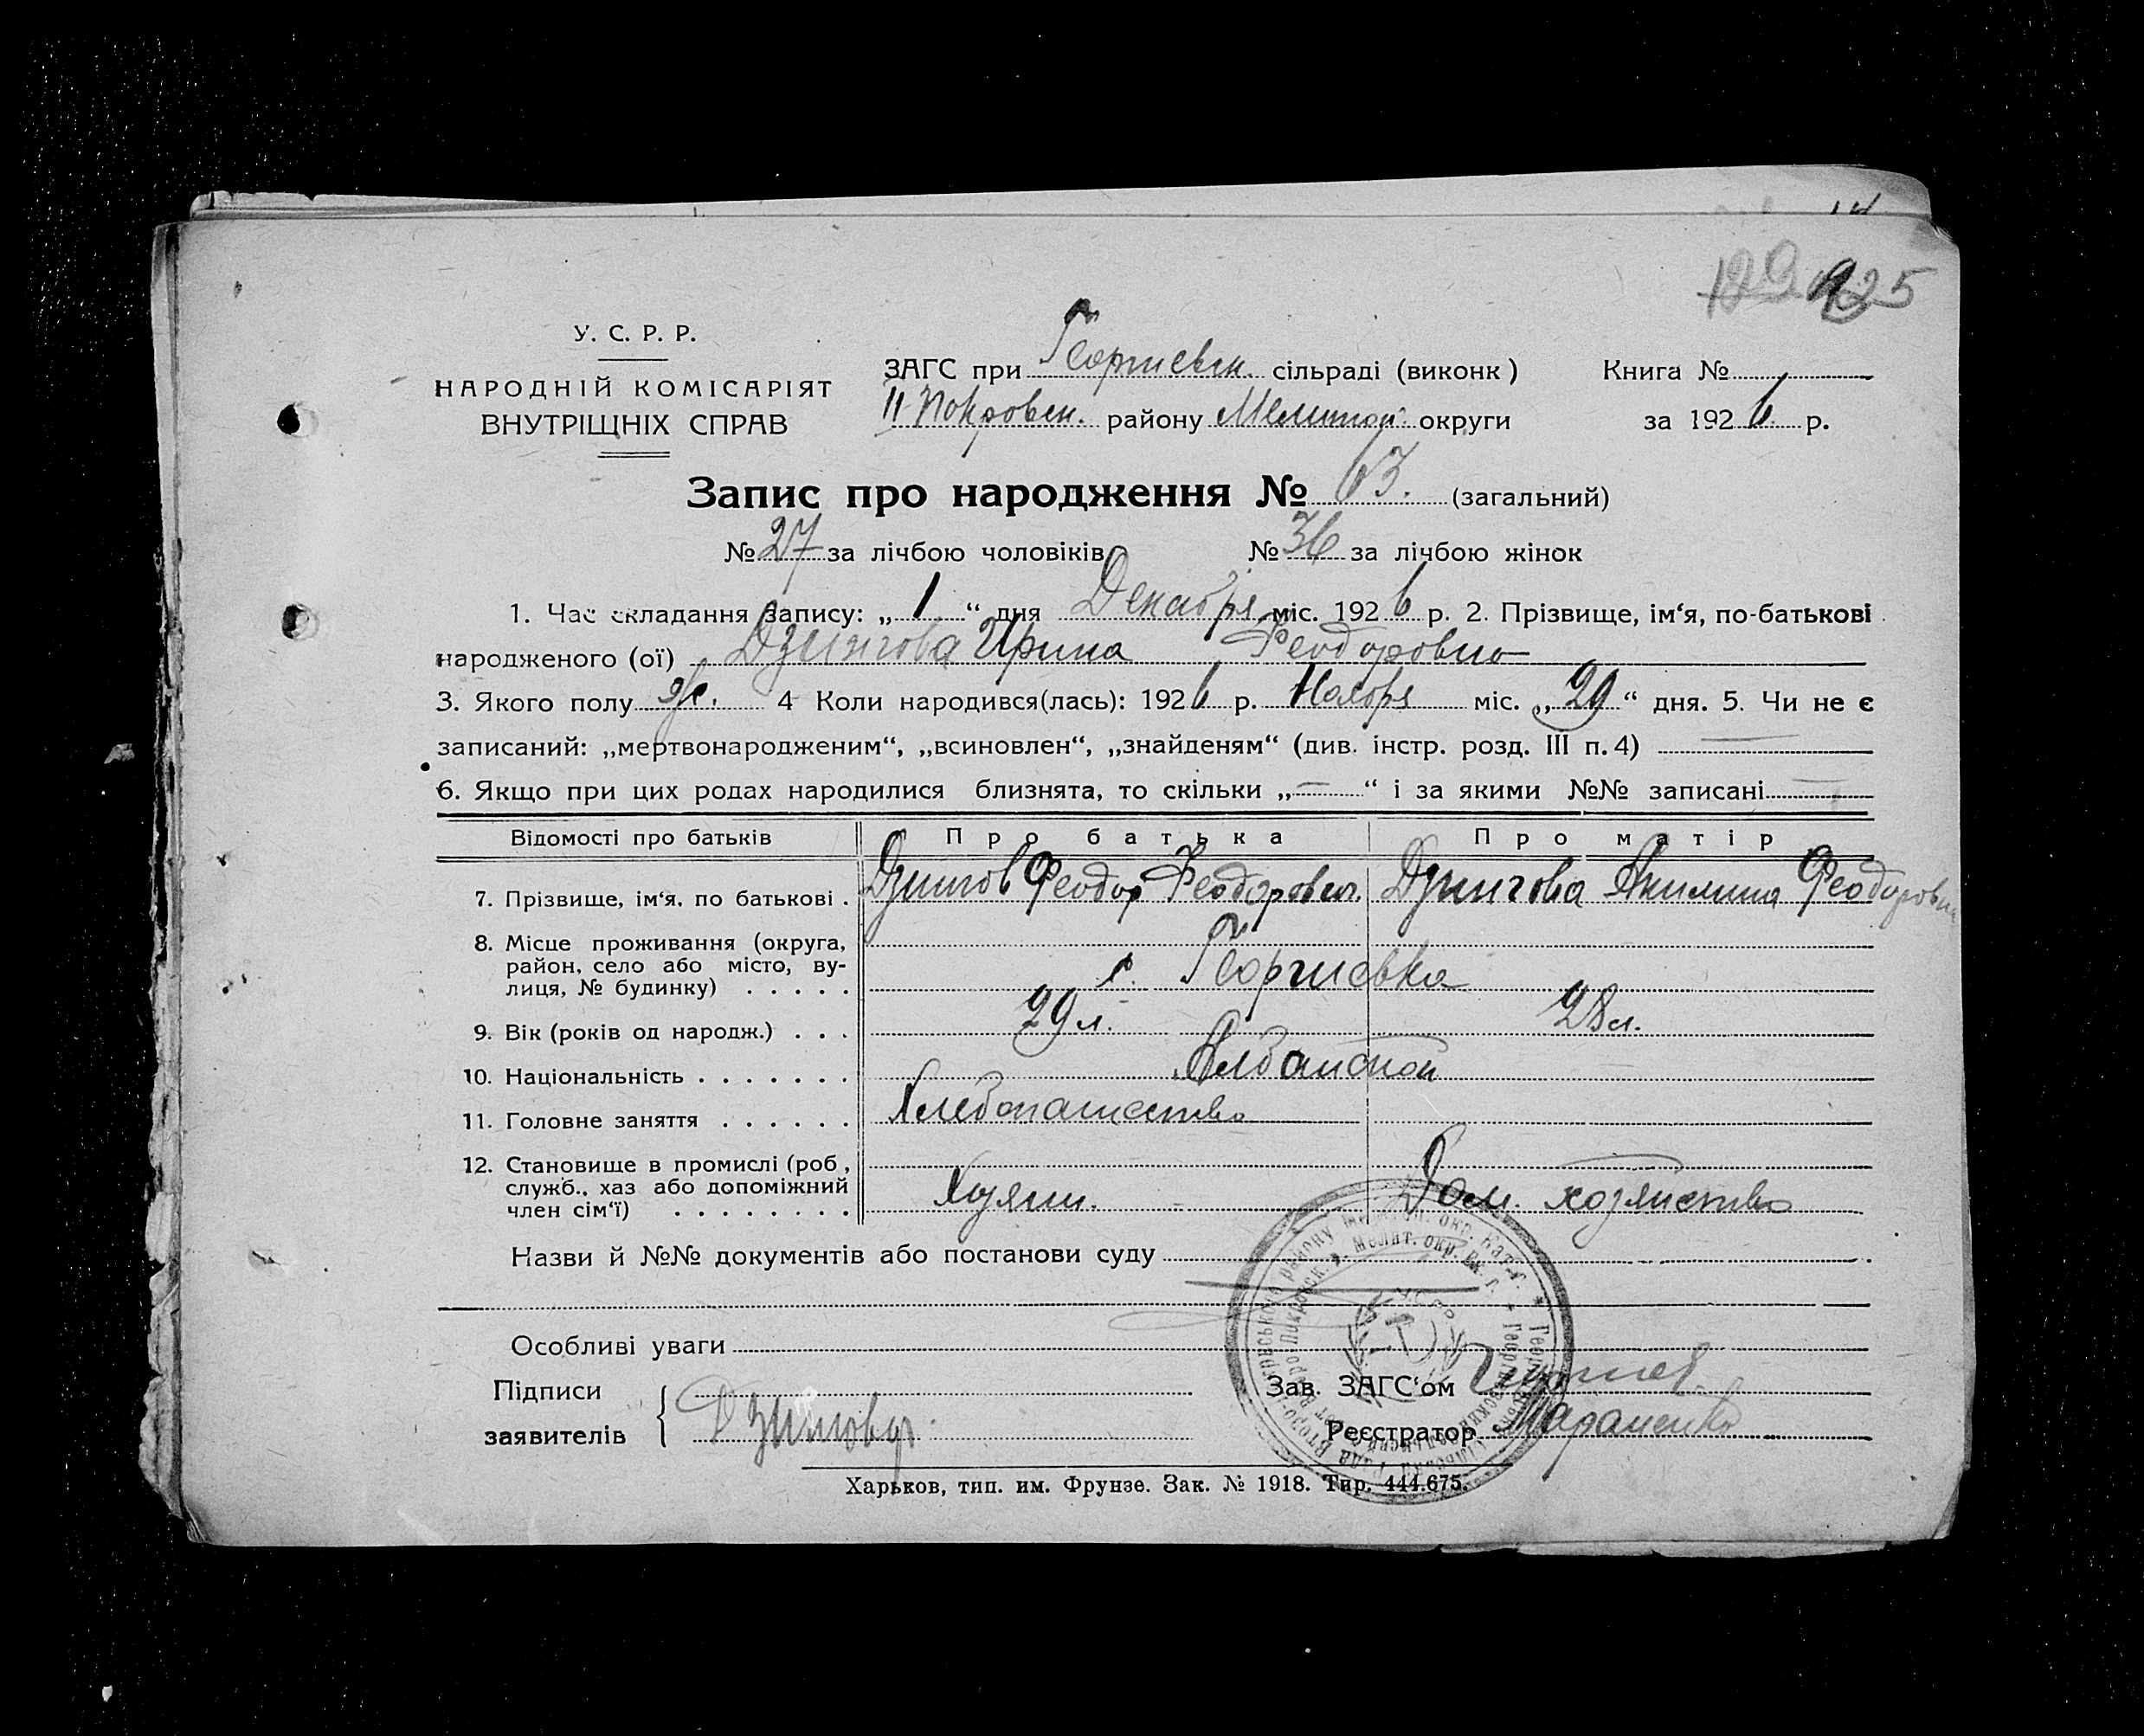 125
У. С. Р. Р.
НАРОДНІЙ КОМІСАРІЯТ
ВНУТРІЩНІХ СПРАВ
ЗАГС при Георгиевск. сільраді (виконк)
ІІ-Покровск. району Мелитоп. округи
Книга №
за 1926 р.
Запис про народження № 63. (загальний)
№ 27 за лічбою чоловіків № 36 за лічбою жінок
1. Час складання запису: „ 1 “ дня Декабря міс. 1926 р. 2. Прізвище, ім‘я, по-батькові
народженого (ої) Дзингова Ирина Феодоровна
3. Якого полу ж. 4 Коли народився(лась): 1926 р. Ноября міс. „ 29 “ дня. 5. Чи не є
записаний: „мертвонародженим“, „всиновлен“, „знайденям“ (див. інстр. розд. III п. 4) —
6. Якщо при цих родах народилися близнята, то скільки „ — “ і за якими №№ записані —
Відомості про батьків Про батька Про матір
7. Прізвище, ім‘я, по батькові . Дзингов Феодор Феодорович Дзингова Акилина Феодоровна
8. Місце проживання (округа,
район, село або місто, ву-
лиця, № будинку) . . . . . с. Георгиевка
9. Вік (років од народж.) . . . 29 л. 28 л.
10. Національність . . . . . . . Албанской
11. Головне заняття . . . . . . Хлебопашество
12. Становище в промислі (роб,
служб., хаз або допоміжний
член сім‘ї) . . . . . . . . Хозяин. Дом. хозяйство
Назви й №№ документів або постанови суду
Особливі уваги
Підписи
заявителів
Дзингов
Зав. ЗАГС‘ом
Реєстратор
Харьков, тип. им. Фрунзе. Зак. № 1918. Тир. 444.675.